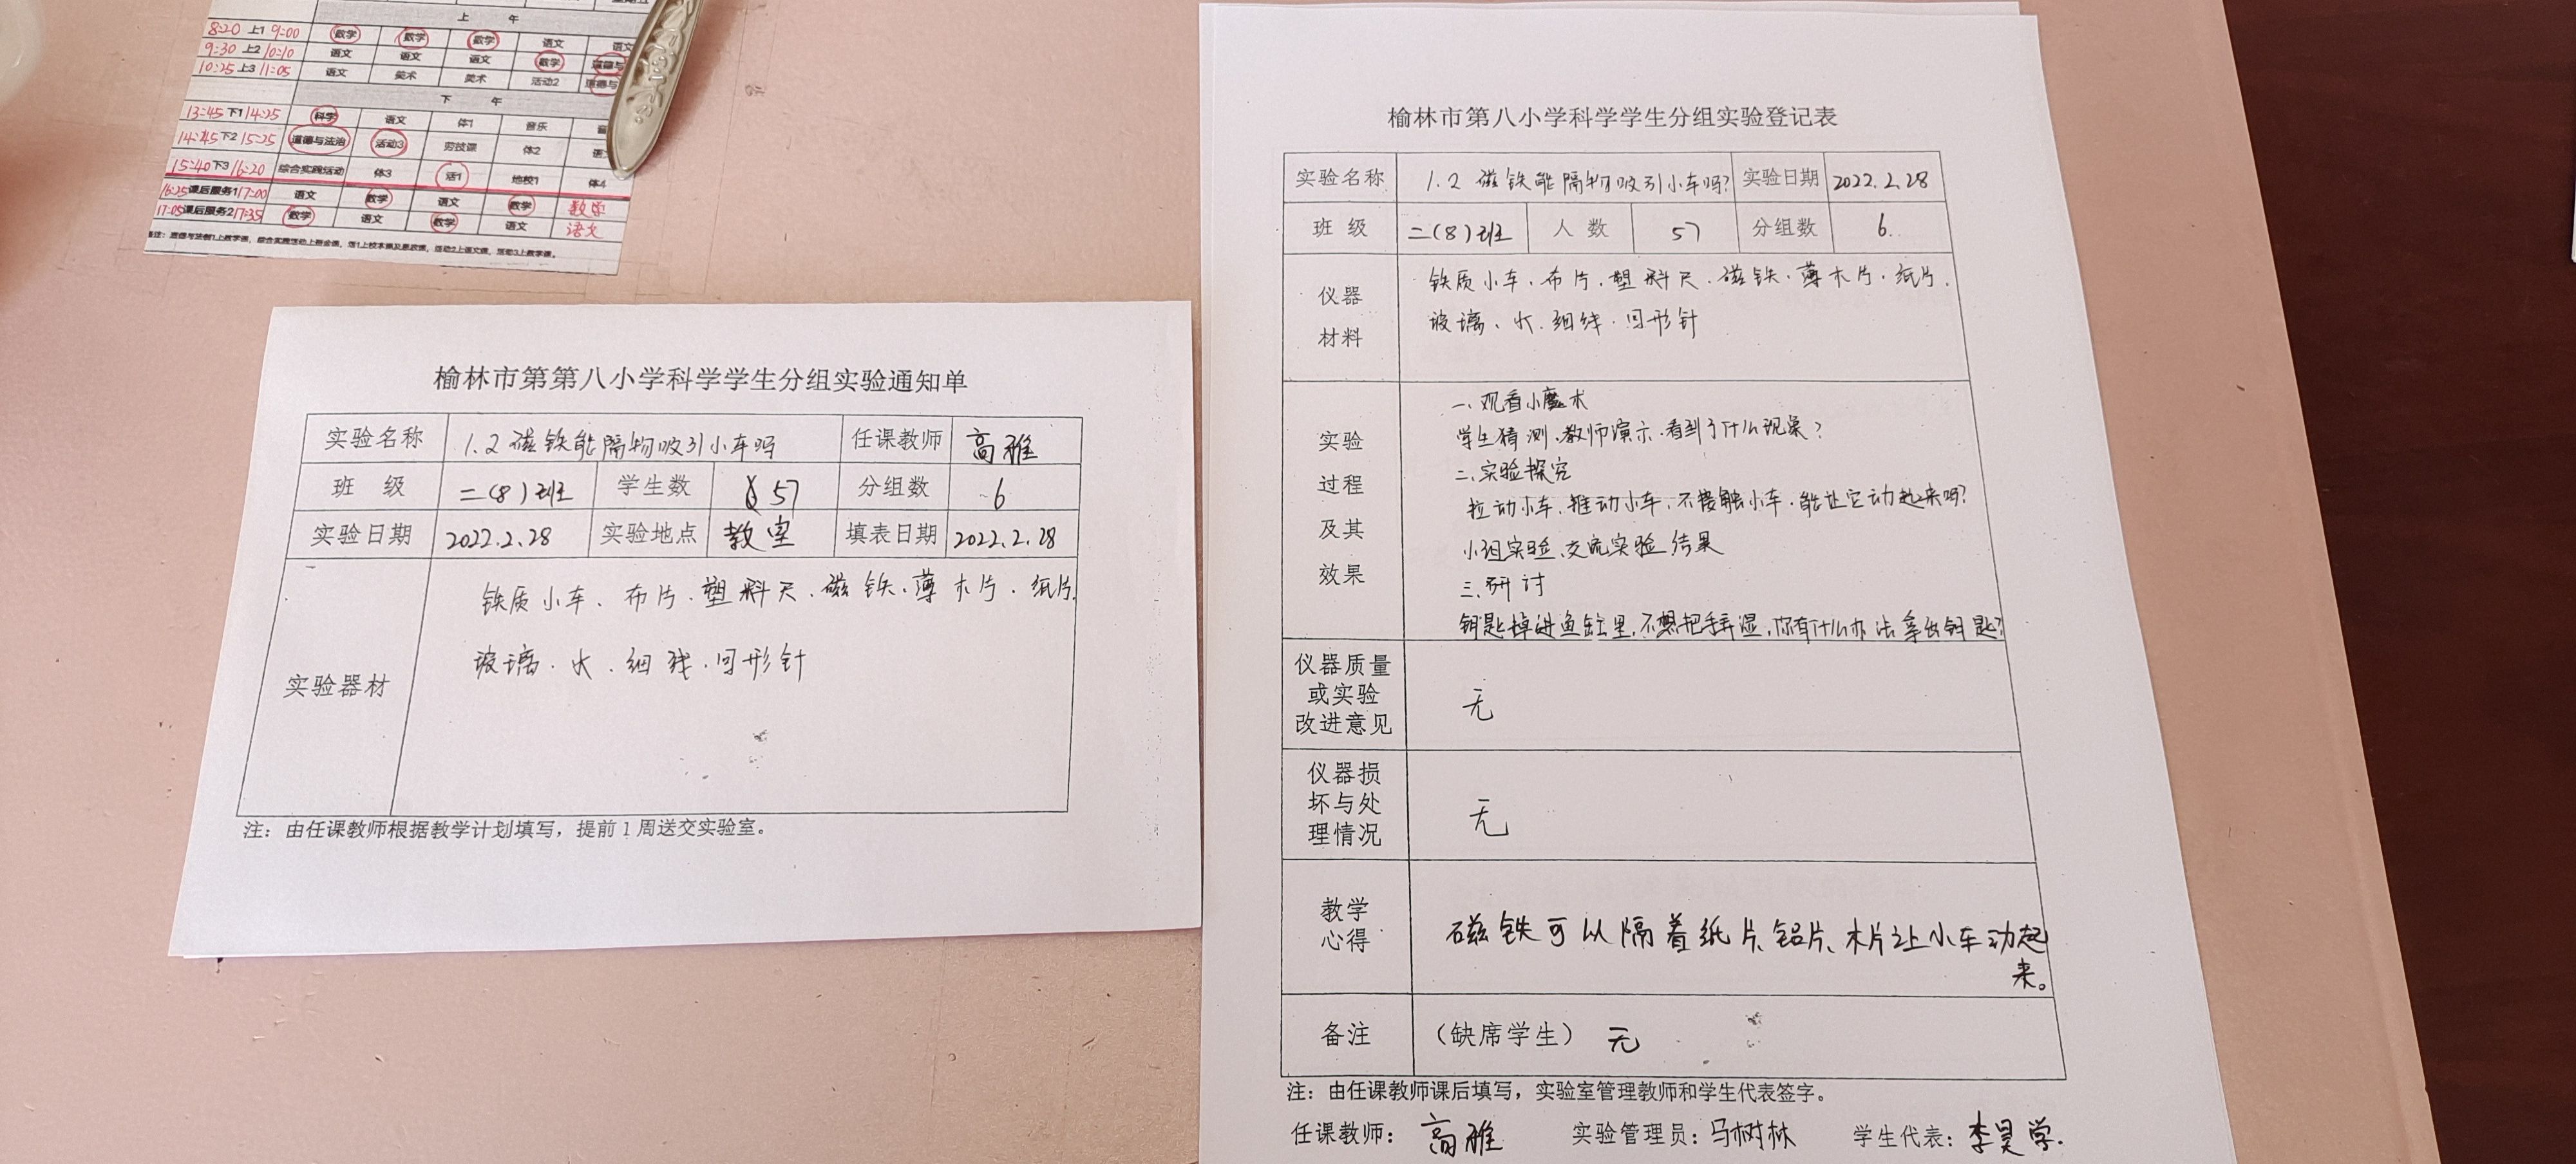 上 午
8:20 上1 9:00 数学 数学 数学 语文 语文
9:30 上2 10:10 语文 语文 语文 数学 道德与
10:25 上3 11:05 语文 美术 美术 活动2 道德与
下 午
13:45 下1 14:25 科学 语文 体1 音乐
14:45 下2 15:25 道德与法治 活动3 劳技课 体2
15:40 下3 16:20 综合实践活动 体3 活1 地校1 体4
16:25 课后服务1 17:00 语文 数学 语文 数学 数学
17:05 课后服务2 17:35 数学 语文 数学 语文 语文
榆林市第第八小学科学学生分组实验通知单
实验名称 1.2 磁铁能隔物吸引小车吗 任课教师 高雅
班 级 二(8)班 学生数 57 分组数 6
实验日期 2022.2.28 实验地点 教室 填表日期 2022.2.28
实验器材
铁质小车、布片、塑料尺、磁铁、薄木片、纸片、
玻璃、水、细线、回形针
注：由任课教师根据教学计划填写，提前1周送交实验室。
榆林市第八小学科学学生分组实验登记表
实验名称 1.2 磁铁能隔物吸引小车吗? 实验日期 2022.2.28
班 级 二(8)班 人 数 57 分组数 6.
仪器
材料
铁质小车、布片、塑料尺、磁铁、薄木片、纸片、
玻璃、水、细线、回形针
实验
过程
及其
效果
一、观看小魔术
学生猜测、教师演示、看到了什么现象?
二、实验探究
拉动小车、推动小车、不接触小车、能让它动起来吗?
小组实验、交流实验结果
三、研讨
钥匙掉进鱼缸里,不想把手弄湿,你有什么办法拿出钥匙?
仪器质量
或实验
改进意见
无
仪器损
坏与处
理情况
无
教学
心得
磁铁可以隔着纸片、铝片、木片让小车动起
来。
备注 （缺席学生） 无
注：由任课教师课后填写，实验室管理教师和学生代表签字。
任课教师： 高雅 实验管理员：马树林 学生代表：李昊学.